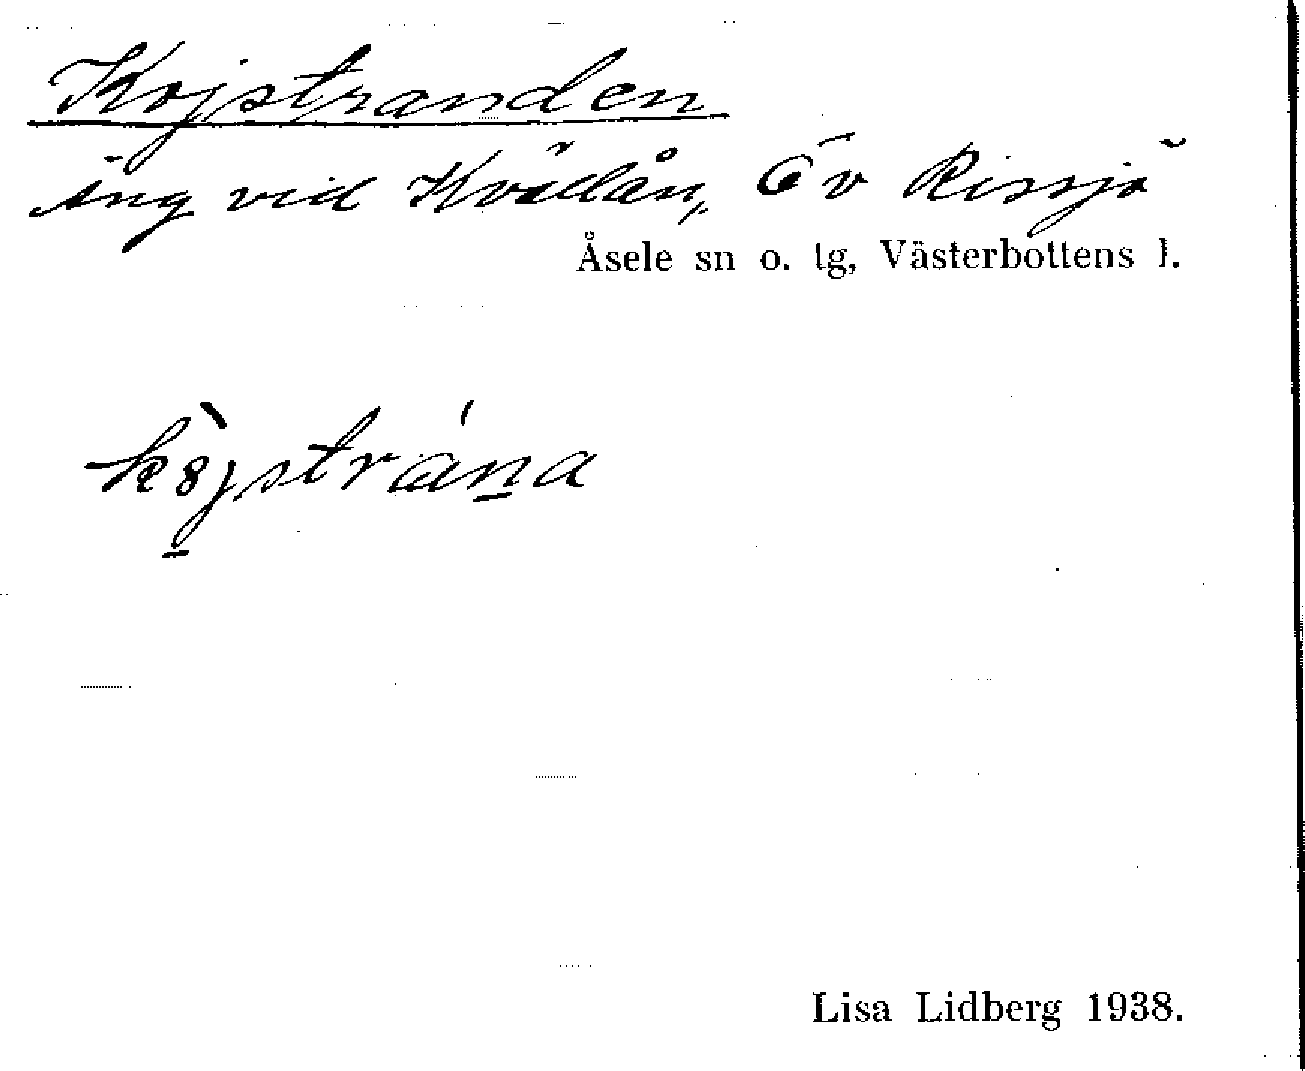 Kojstranden
äng vid Kvällån, Öv Rissjö
Åsele sn o. lg, Västerbottens l.
kòjstrána
Lisa Lidberg 1938.